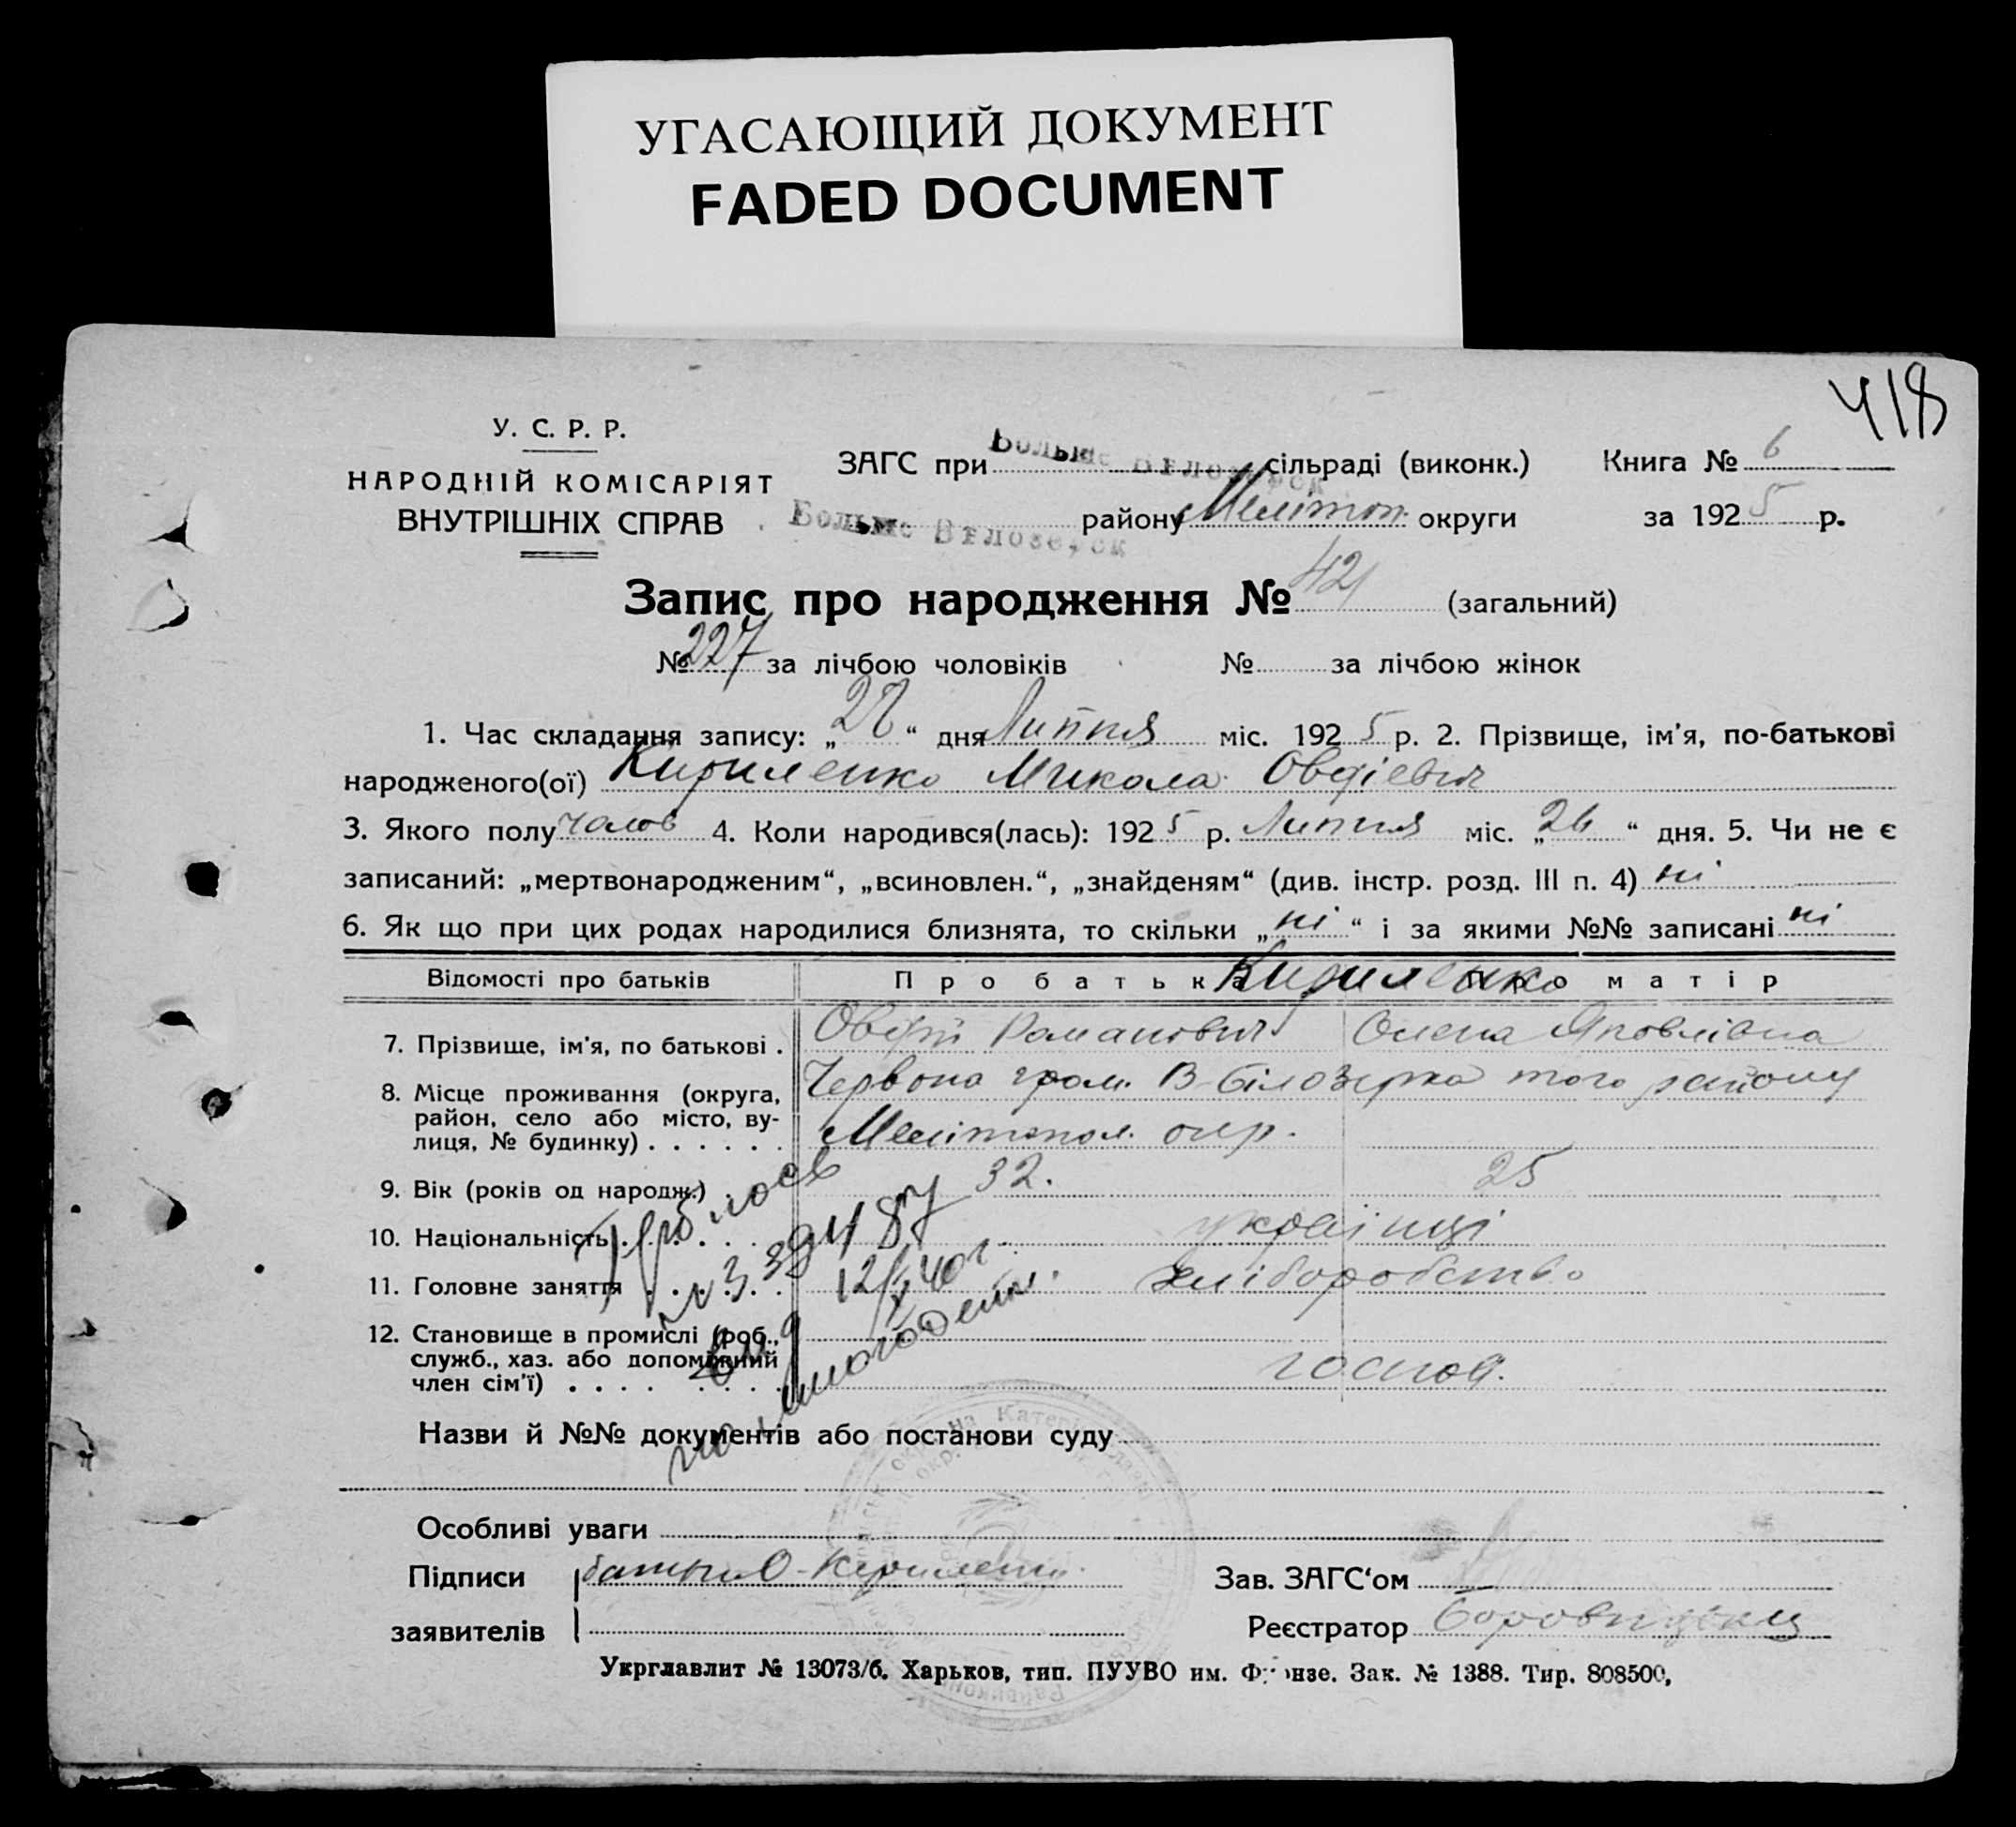 УГАСАЮЩИЙ ДОКУМЕНТ
FADED DOCUMENT
418
У. С. Р. Р.
НАРОДНІЙ КОМІСАРІЯТ
ВНУТРІШНІХ СПРАВ
ЗАГС при Больше Бѣлозерск сільраді (виконк.) Книга № 6
Больше Бѣлозерск району Меліто п. округи за 1925 р.
Запис про народження № 421 (загальний)
№ 227 за лічбою чоловіків № за лічбою жінок
1. Час складання запису: „28“ дня Липня міс. 1925 р. 2. Прізвище, ім'я, по-батькові
народженого(ої) Кириленко Микола Овдієвич
3. Якого полу чолов 4. Коли народився(лась): 1925 р. Липня міс. „26“ дня. 5. Чи не є
записаний: „мертвонародженим“, „всиновлен.“, „знайденям“ (див. інстр. розд. III п. 4) ні
6. Як що при цих родах народилися близнята, то скільки „ні“ і за якими №№ записані ні
Відомості про батьків Про батька Кириленко Про матір
7. Прізвище, ім'я, по батькові . Романович Олена Яковлівна
8. Місце проживання (округа, Червона гром. В-Білозерка того району
район, село або місто, ву-
лиця, № будинку) . . . . . . Мелітопол. окр.
9. Вік (років од народж.) . 32. 25
10. Національність . . . . українці
11. Головне заняття . . . . . хліборобство
12. Становище в промислі (роб.,
служб., хаз. або допоміжний господ.
член сім'ї) . . . .
12/X 40 г.
Назви й №№ документів або постанови суду
Особливі уваги
Підписи батько О. Кириленко Зав. ЗАГС'ом
заявителів Реєстратор
Укрглавлит № 13073/б. Харьков, тип. ПУУВО им. Фрунзе. Зак. № 1388. Тир. 808500,